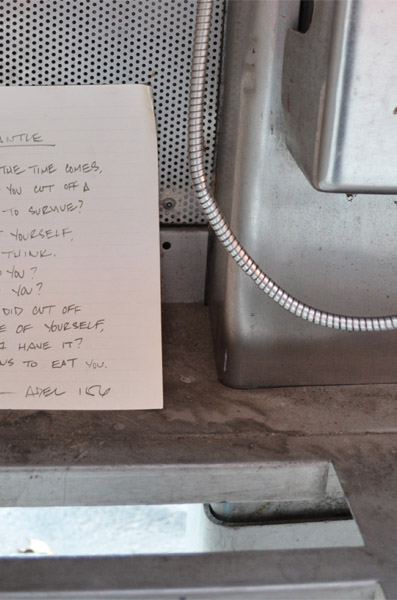 ANTLE
THE TIME COMES,
YOU CUT OFF A
-TO SURVIVE?
YOURSELF,
THINK.
YOU?
YOU?
DID CUT OFF
OF YOURSELF,
I HAVE IT?
US TO EAT YOU.
— ADEL